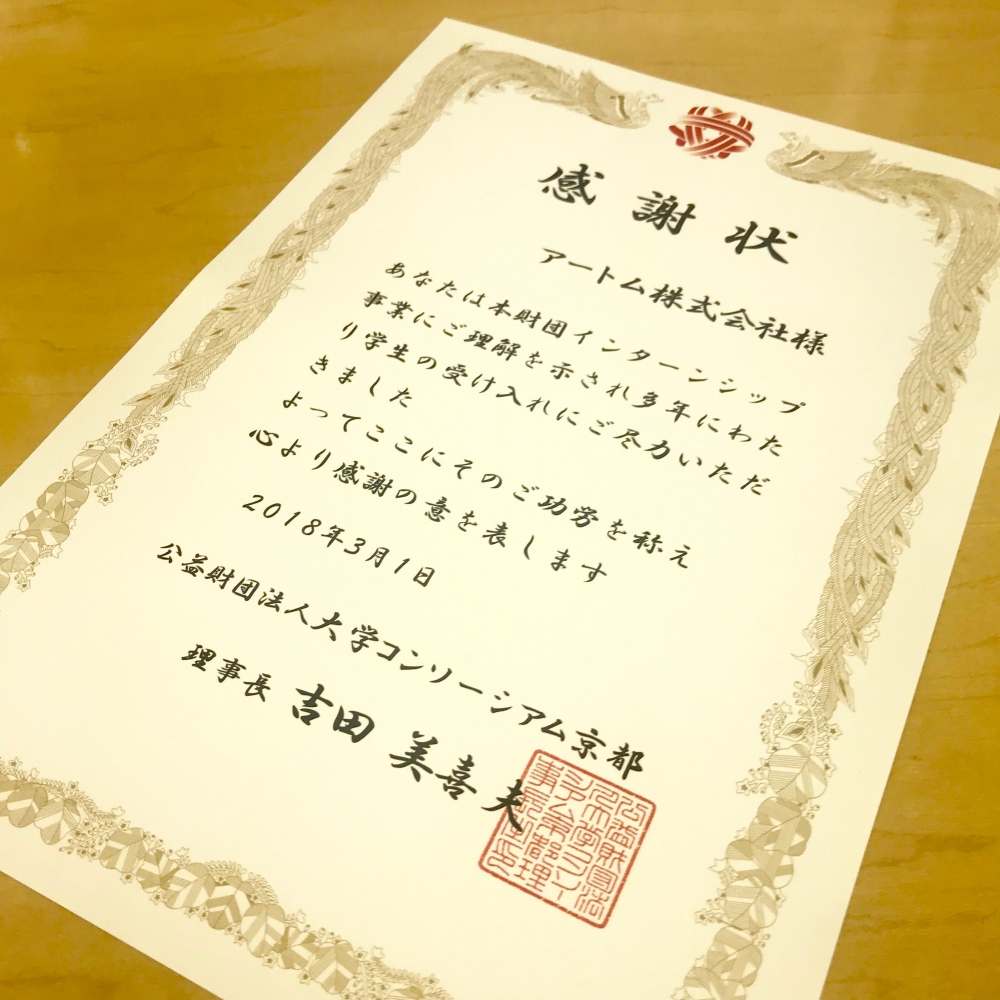 感謝状
アートム株式会社様
あなたは本財団インターンシップ
事業にご理解を示され多年にわた
り学生の受け入れにご尽力いただ
きました
よってここにそのご功労を称え
心より感謝の意を表します
2018年3月1日
公益財団法人大学コンソーシアム京都
理事長 吉田 美喜夫